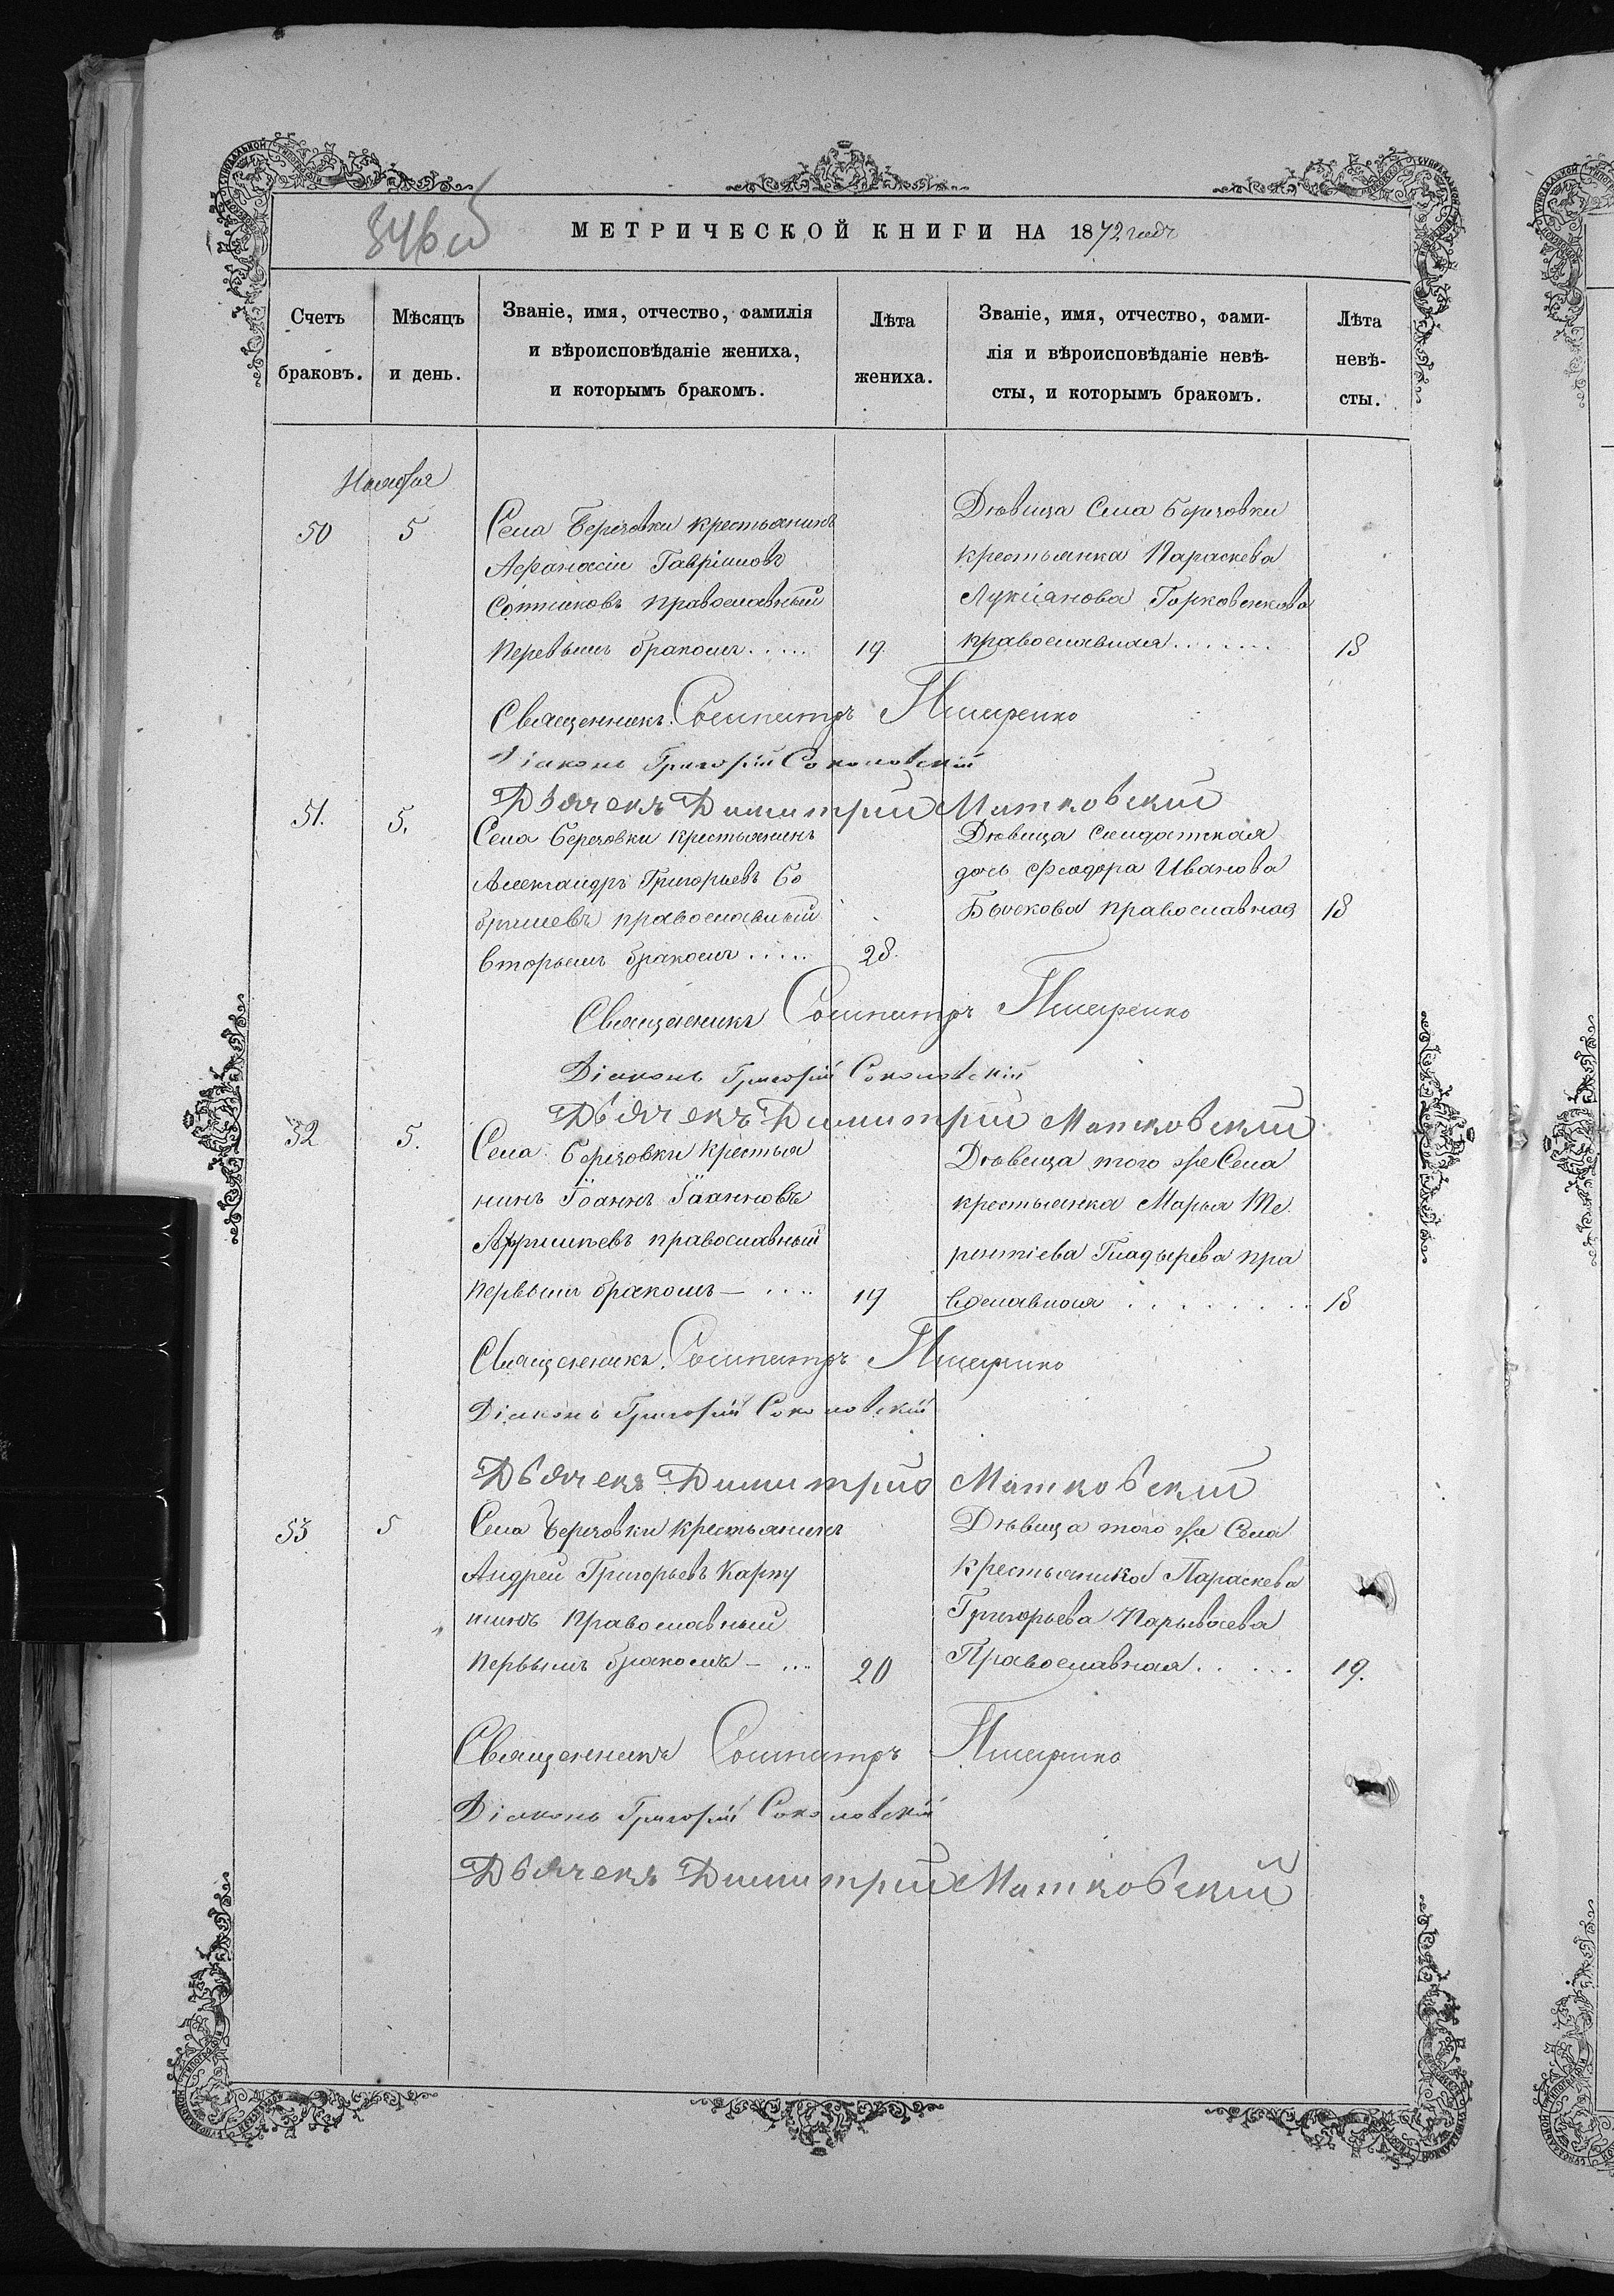 МЕТРИЧЕСКОЙ КНИГИ НА 1872 годъ
Счетъ браковъ.
Мѣсяцъ и день.
Званіе, имя, отчество, фамилія
и вѣроисповѣданіе жениха,
и которымъ бракомъ.
Лѣта жениха.
Званіе, имя, отчество, фами-
лія и вѣроисповѣданіе невѣ-
сты, и которымъ бракомъ.
Лѣта невѣ-
сты.
Ноября
50 5
Села Березовки крестьянинъ
Афанасій Гавріиловъ
Сотниковъ православный
первымъ бракомъ..... 19
Дѣвица Села Березовки
крестьянка Параскева
Лукіанова Горковенкова
православная....... 18
Священникъ Сосипатръ
Діаконъ Григорій Соколовскій
Дьячекъ Димитрій Матковский
51. 5.
Села Березовки крестьянинъ
Александръ Григорьевъ Бо
бришевъ православный
вторымъ бракомъ..... 28.
Дѣвица Солдатская
дочь Феодора Иванова
Быскова православная 18
Священникъ Сосипатръ
Діаконъ Григорій Соколовскій
Дьячекъ Димитрій Матковский
52 5.
Села Березовки крестья
нинъ Іоаннъ Іоанновъ
православный
первымъ бракомъ— .... 19
Дѣвица того же Села
крестьянка Марья Те
рентіева Гладырева пра
вославная ......... 18
Священникъ Сосипатръ
Діаконъ Григорій Соколовскій
Дьячекъ Димитрій Матковский
53 5
Села Березовки крестьянинъ
Андрей Григорьевъ Карпу
шинъ Православный
первымъ бракомъ— ... 20
Дѣвица того же Села
крестьянка Параскева
Григорьева Парываева
Православная..... 19.
Священникъ Сосипатръ
Діаконъ Григорій Соколовскій
Дьячекъ Димитрій Матковский